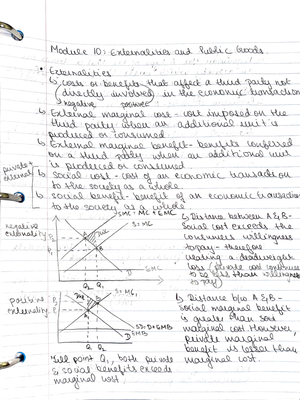 Module 10: Externalities and Public Goods
Externalities
↳ costs or benefits that affect a third party not
directly involved in the economic transaction
↳ negative positive
↳ External marginal cost - cost imposed on the
third party when an additional unit is
produced or consumed
↳ External marginal benefit - benefits conferred
on a third party when an additional unit
is produced or consumed
private + external
↳ Social cost - cost of an economic transaction
to the society as a whole.
↳ social benefit - benefit of an economic transaction
to the society as a whole
SMC = MC + EMC
S = MC
negative externality
A
B
D
Q2 Q1
EMC
↳ Distance between A & B -
Social cost exceeds the
consumers willingness
to pay - therefore
creating a deadweight
loss (private cost continues
to be less than willingness
to pay)
positive externality
S = MC
A
B
D
EMB
Q1 Q2
↳ Distance b/w A & B -
social marginal benefit
is greater than social
marginal cost. However,
private marginal
benefit is lesser than
marginal cost.
Till point Q1, both private
& social benefits exceed
marginal cost.